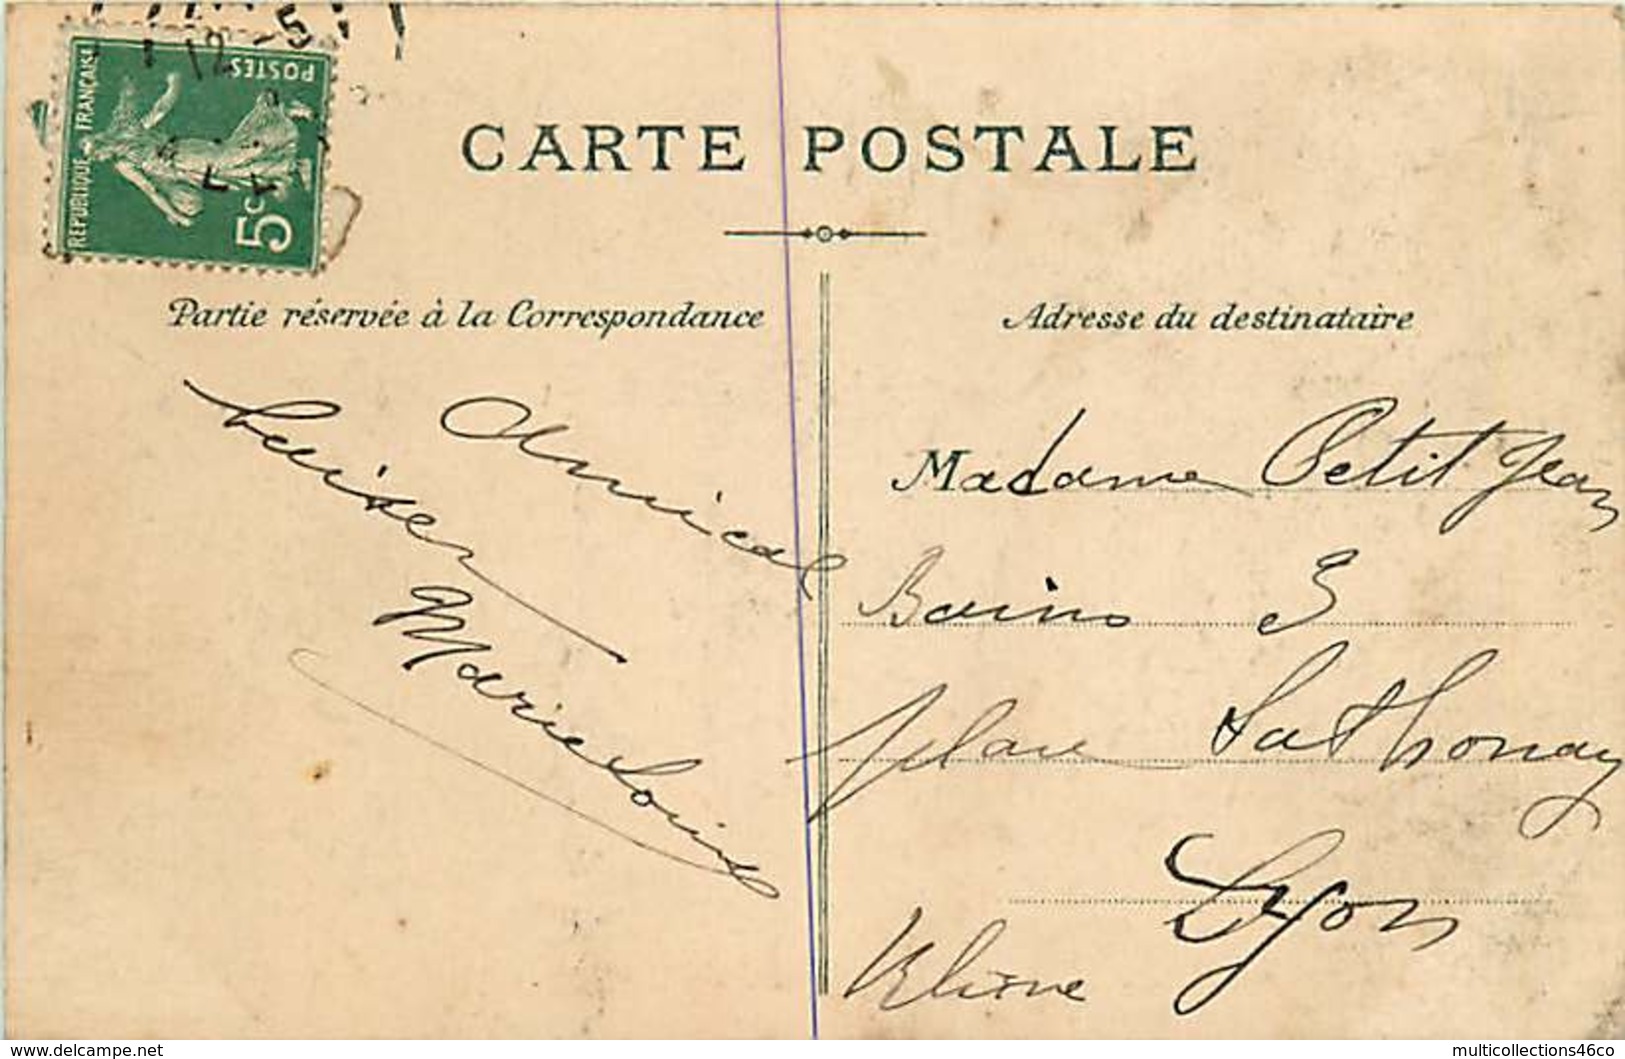 12 -5
POSTES
REPUBLIQUE FRANÇAISE
5c
CARTE POSTALE
Partie réservée à la Correspondance
Adresse du destinataire
Amical
baiser
Marie Louise
Madame Petit Jean
Bains 3
place Sathonay
Lyon
Rhône
delcampe.net
multicollections46co